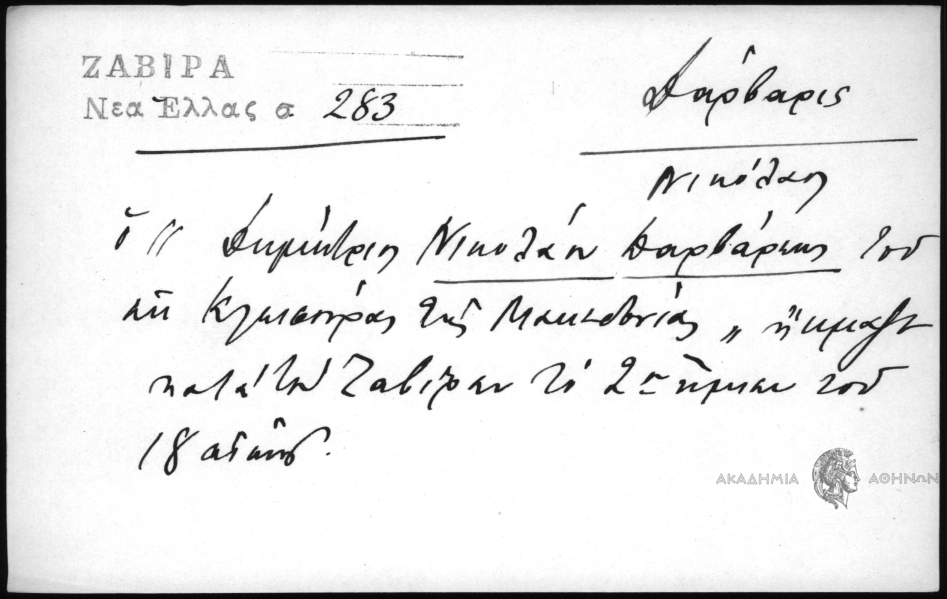 ΖΑΒΙΡΑ
Νεα Ἑλλας σ 283
Δάρβαρις
Νικόλαος
ὁ "Δημήτριος Νικολάου Δαρβάρεως τοῦ
ἐκ Κλεισούρας τῆς Μακεδονίας" ἤκμαζε
κατὰ τὸν Ζαβίραν τὸ 2ον ἥμισυ τοῦ
18 αἰῶνος.
ΑΚΑΔΗΜΙΑ ΑΘΗΝΩΝ